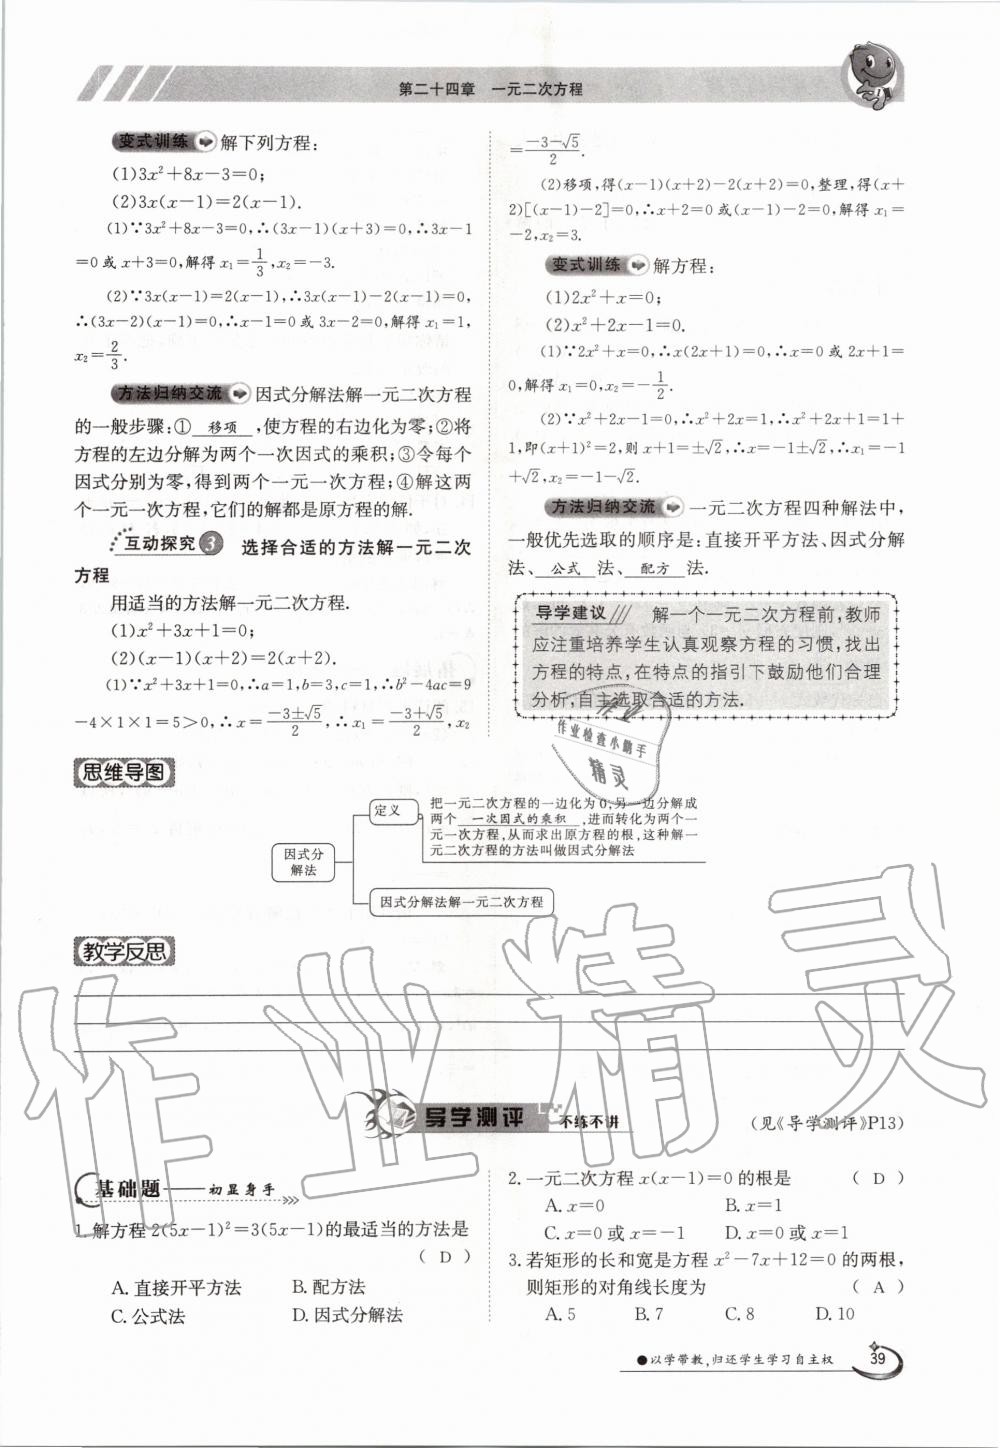 第二十四章 一元二次方程
变式训练 解下列方程:
(1)3x²+8x-3=0;
(2)3x(x-1)=2(x-1).
(1)∵3x²+8x-3=0,∴(3x-1)(x+3)=0,∴3x-1
=0或x+3=0,解得x₁=1/3,x₂=-3.
(2)∵3x(x-1)=2(x-1),∴3x(x-1)-2(x-1)=0,
∴(3x-2)(x-1)=0,∴x-1=0或3x-2=0,解得x₁=1,
x₂=2/3.
方法归纳交流 因式分解法解一元二次方程
的一般步骤:① 移项 ,使方程的右边化为零;②将
方程的左边分解为两个一次因式的乘积;③令每个
因式分别为零,得到两个一元一次方程;④解这两
个一元一次方程,它们的解都是原方程的解.
互动探究3 选择合适的方法解一元二次
方程
用适当的方法解一元二次方程.
(1)x²+3x+1=0;
(2)(x-1)(x+2)=2(x+2).
(1)∵x²+3x+1=0,∴a=1,b=3,c=1,∴b²-4ac=9
-4×1×1=5>0,∴x=(-3±√5)/2,∴x₁=(-3+√5)/2,x₂
=(-3-√5)/2.
(2)移项,得(x-1)(x+2)-2(x+2)=0,整理,得(x+
2)[(x-1)-2]=0,∴x+2=0或(x-1)-2=0,解得x₁=
-2,x₂=3.
变式训练 解方程:
(1)2x²+x=0;
(2)x²+2x-1=0.
(1)∵2x²+x=0,∴x(2x+1)=0,∴x=0或2x+1=
0,解得x₁=0,x₂=-1/2.
(2)∵x²+2x-1=0,∴x²+2x=1,∴x²+2x+1=1+
1,即(x+1)²=2,则x+1=±√2,∴x=-1±√2,∴x₁=-1
+√2,x₂=-1-√2.
方法归纳交流 一元二次方程四种解法中,
一般优先选取的顺序是:直接开平方法、因式分解
法、 公式 法、 配方 法.
导学建议 解一个一元二次方程前,教师
应注重培养学生认真观察方程的习惯,找出
方程的特点,在特点的指引下鼓励他们合理
分析,自主选取合适的方法.
作业
作业检查小助手
精灵
思维导图
因式分
解法
定义
把一元二次方程的一边化为0,另一边分解成
两个 一次因式的乘积 ,进而转化为两个一
元一次方程,从而求出原方程的根,这种解一
元二次方程的方法叫做因式分解法
因式分解法解一元二次方程
教学反思
作业精灵
导学测评 不练不讲
(见《导学测评》P13)
基础题——初显身手
1.解方程2(5x-1)²=3(5x-1)的最适当的方法是
( D )
A.直接开平方法 B.配方法
C.公式法 D.因式分解法
2.一元二次方程x(x-1)=0的根是 ( D )
A.x=0 B.x=1
C.x=0或x=-1 D.x=0或x=1
3.若矩形的长和宽是方程x²-7x+12=0的两根,
则矩形的对角线长度为 ( A )
A.5 B.7 C.8 D.10
●以学带教,归还学生学习自主权
39